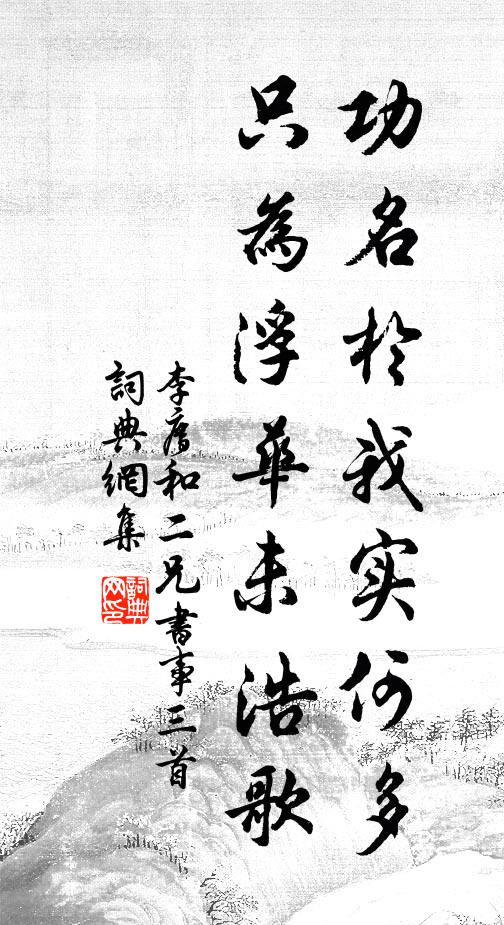 功名於我实何多
只為浮華未浩歌
李廌和二兄書事三首
詞典網集
詞典網印